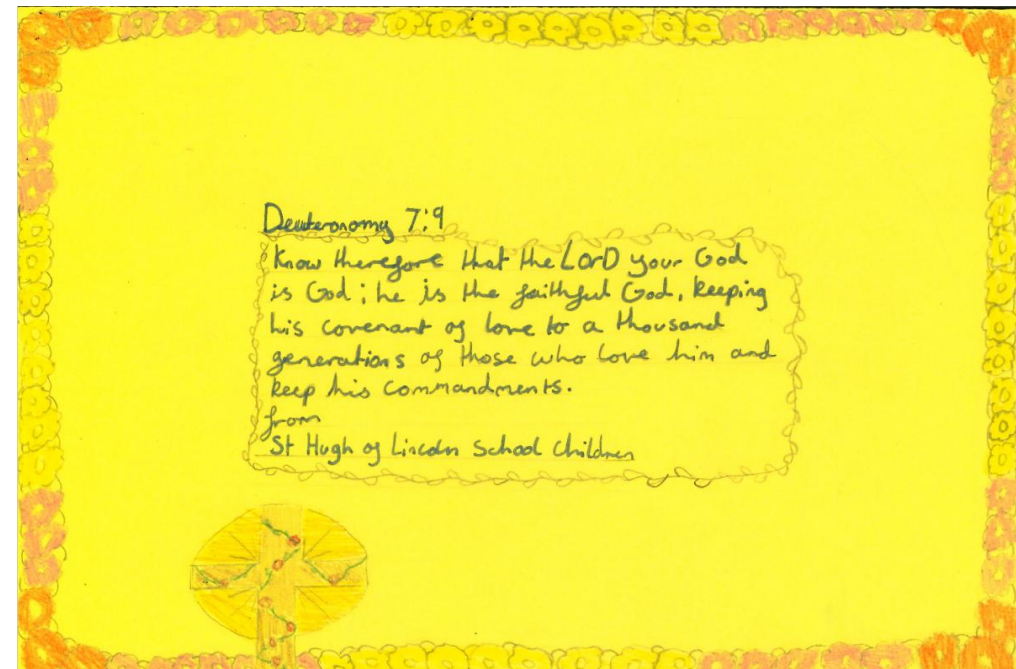 Deuteronomy 7:9
Know therefore that the LorD your God
is God; he is the faithful God, keeping
his covenant of love to a thousand
generations of those who love him and
keep his commandments.
from
St Hugh of Lincoln School Children